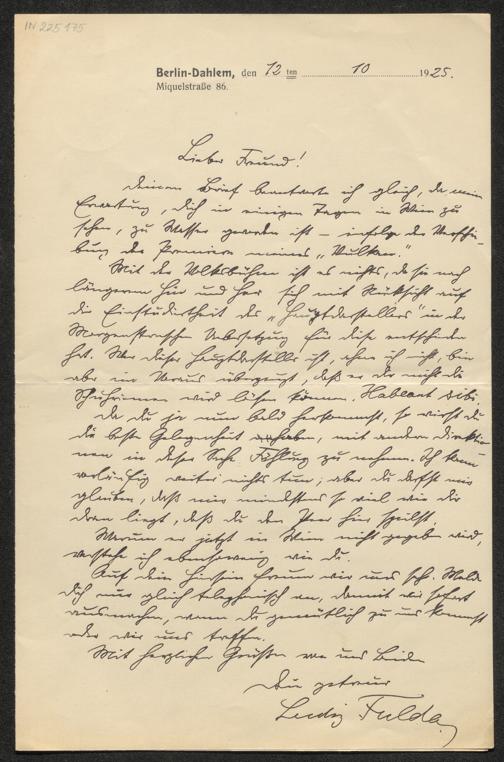 IN 225 175
Berlin-Dahlem, den 12 ten 10 1925.
Miquelstraße 86.
Lieber Freund!
Deinen Brief beantworte ich gleich, da mein
Erwartung, dich in einigen Tagen in Wien zu
sehen, zu Wasser geworden ist – infolge der Verschie-
bung der Premiere meines „Vulkan."
Mit der Volksbühne ist es nichts, da sie nach
längerem Hin und Her sich mit Rücksicht auf
die Einstudiertheit des „Hauptdarstellers" in der
Morgensternschen Uebersetzung für diese entschieden
hat. Wer dieser Hauptdarsteller ist, ahne ich nicht, bin
aber im Voraus überzeugt, daß er dir nicht die
Schuhriemen wird lösen können. Habeant sibi.
Da du ja nun bald herkommst, so wirst du
die beste Gelegenheit haben, mit andern Direktio-
nen in dieser Sache Fühlung zu nehmen. Ich kann
vorläufig weiter nichts tun; aber du darfst mir
glauben, daß mir mindestens so viel wie dir
daran liegt, daß du den Peer hier spielst.
Warum er jetzt in Wien nicht gegeben wird,
verstehe ich ebensowenig wie du.
Auf dein Hiersein freuen wir uns sehr. Melde
dich nur gleich telephonisch an, damit wir sofort
ausmachen, wann du gemütlich zu uns kommst
oder wir uns treffen.
Mit herzlichen Grüßen von uns Beiden
Dein getreuer
Ludwig Fulda